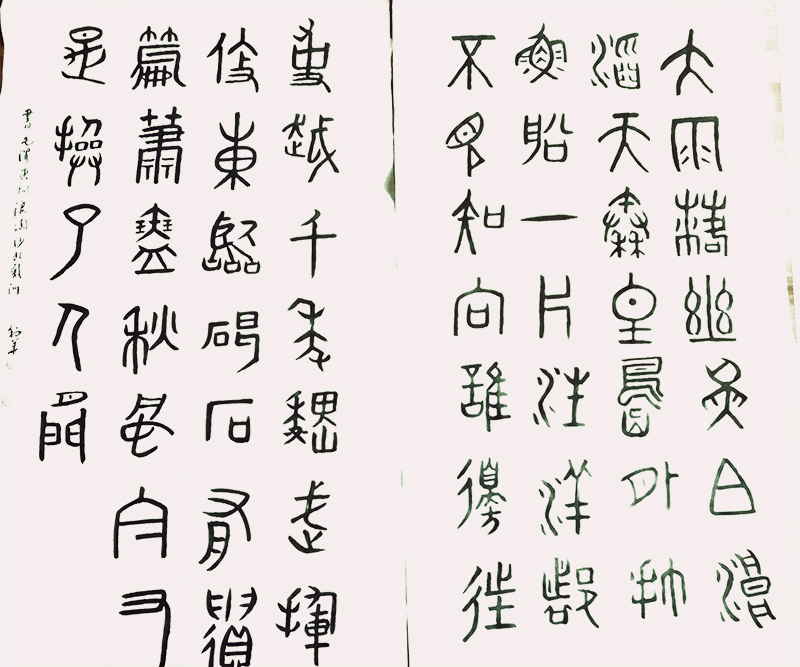 大雨落幽燕白浪
滔天秦皇島外打
魚船一片汪洋都
不見知向誰邊往
事越千年魏武揮
鞭東臨碣石有遺
篇蕭瑟秋風今又
是換了人間
書毛澤東词浪淘沙北戴河